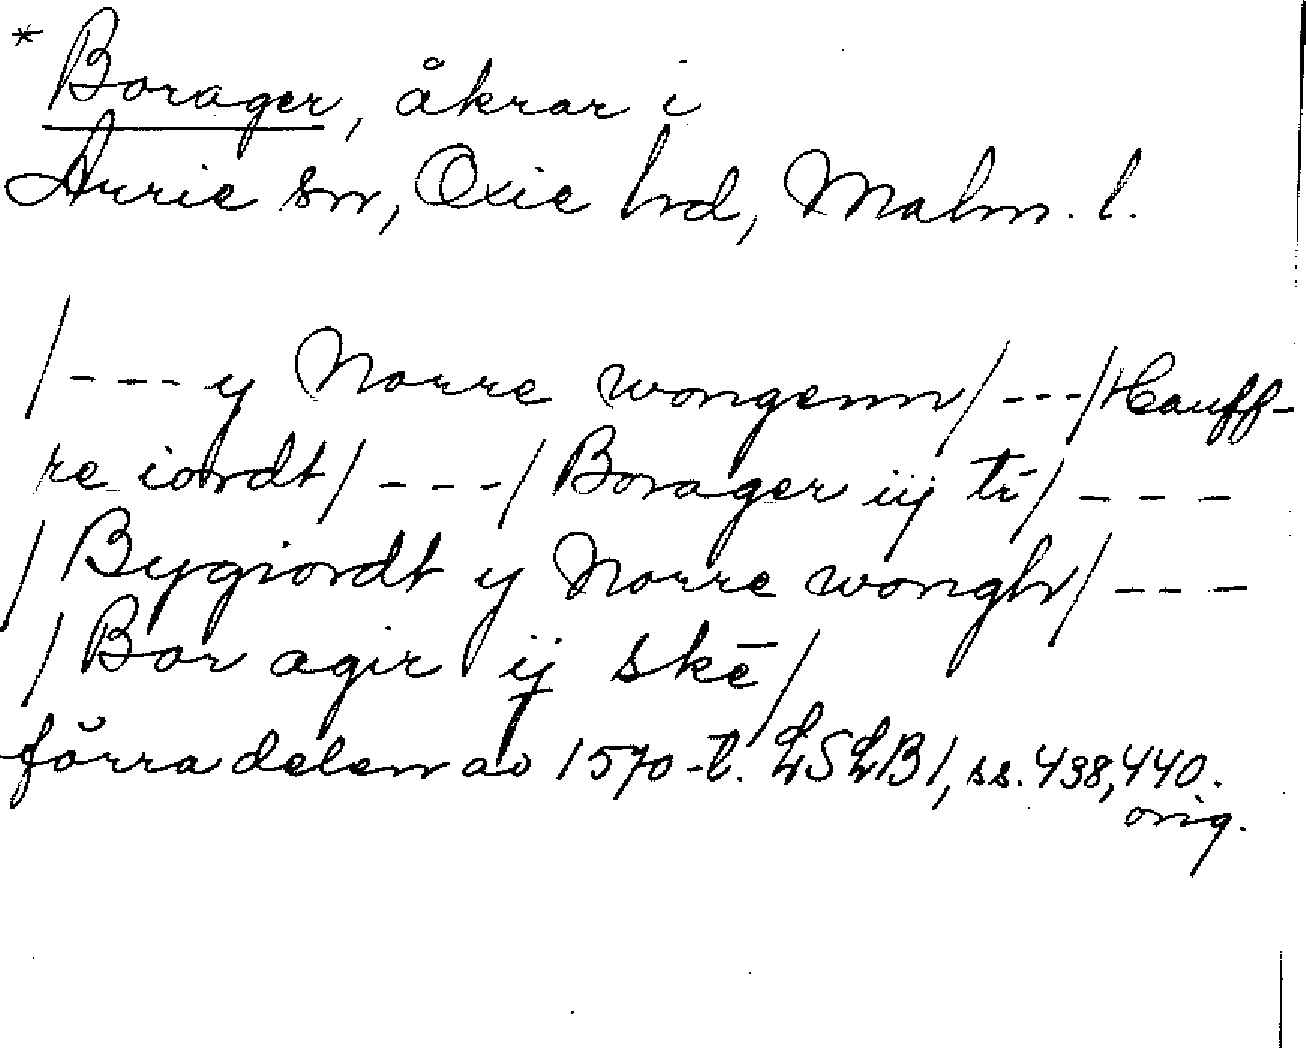 * Borager, åkrar i
Arrie sn, Oxie hd, Malm. l.
/---y Norre wongenn/---/Hauff-
re iordt/---/Borager iij tī/---
/Bygiordt y Norre wongh/---
/Bor agir ij skē/
förra delen av 1570-t. LSLB1, ss. 438, 440.
orig.